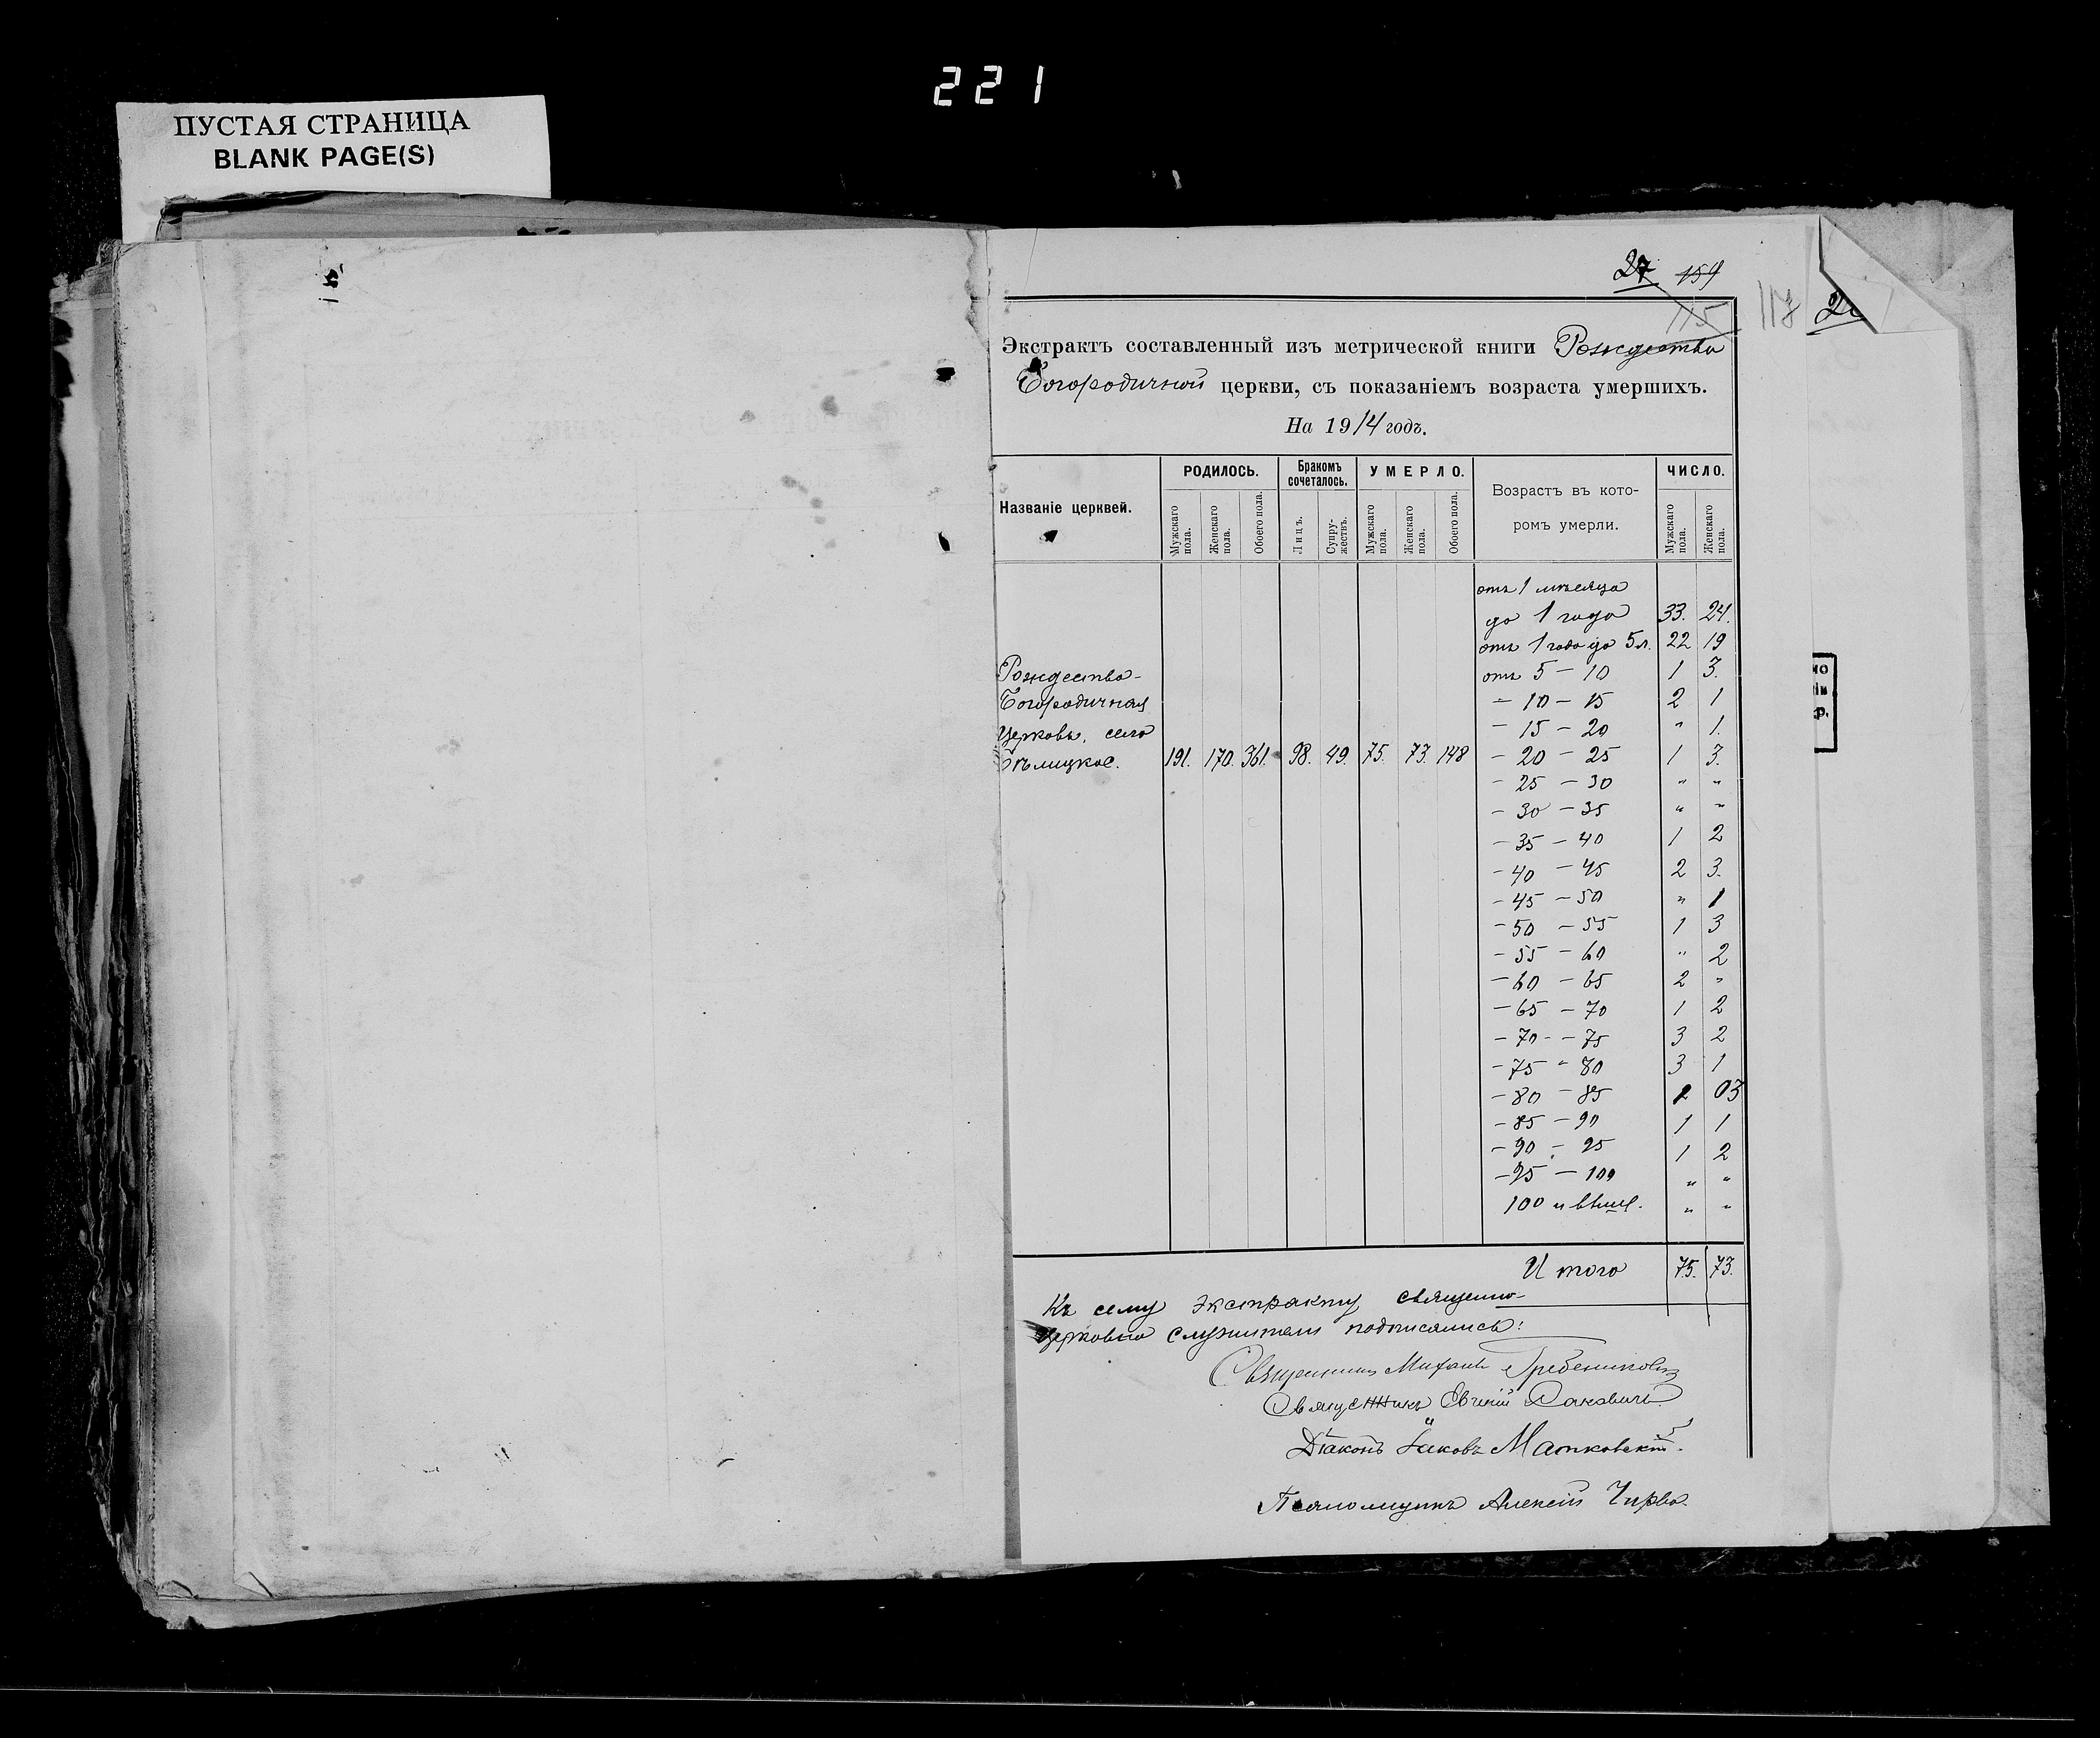 221
ПУСТАЯ СТРАНИЦА
BLANK PAGE(S)
27 159
115
118
Экстрактъ составленный изъ метрической книги Рождества
Богородичной церкви, съ показаніемъ возраста умершихъ.
На 1914 годъ.
Названіе церквей.
РОДИЛОСЬ.
Бракомъ сочеталось.
УМЕРЛО.
Возрастъ въ кото-
ромъ умерли.
ЧИСЛО.
Мужскаго пола. Женскаго пола. Обоего пола. Лицъ. Супру-жествъ. Мужскаго пола. Женскаго пола. Обоего пола. Мужскаго пола. Женскаго пола.
отъ 1 мѣсяца
до 1 года 33. 24.
отъ 1 года до 5 л. 22 19
Рождество- отъ 5 – 10 1 3.
Богородичная – 10 – 15 2 1
Церковь, село – 15 – 20 " 1.
Бѣлицкое. 191. 170. 361. 98. 49. 75. 73. 148 – 20 – 25 1 3.
– 25 – 30 " "
– 30 – 35 " "
– 35 – 40 1 2
– 40 – 45 2 3.
– 45 – 50 " 1
– 50 – 55 1 3
– 55 – 60 " 2
– 60 – 65 2 "
– 65 – 70 1 2
– 70 – 75 3 2
– 75 – 80 3 1
– 80 – 85 2 03
– 85 – 90 1 1
– 90 – 95 1 2
– 95 – 100 " "
100 и выше. " "
Итого 75. 73.
Къ сему экстракту священно-
церковно служители подписались:
Священникъ Михаилъ Гребениковъ
Священникъ Евгеній
Діаконъ Іаковъ Матковскій.
Псаломщикъ Алексій Чирва.